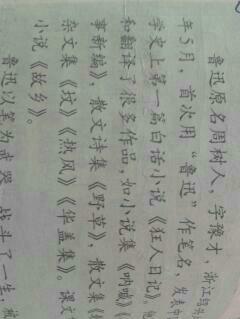 鲁迅原名周树人，字豫才，浙江绍兴
年5月，首次用“鲁迅”作笔名，发表中
学史上第一篇白话小说《狂人日记》。他
和翻译了很多作品，如小说集《呐喊》《
事新编》，散文诗集《野草》，散文集《
杂文集《坟》《热风》《华盖集》。课文
小说《故乡》。
鲁迅以笔为武器，战斗了一生，被